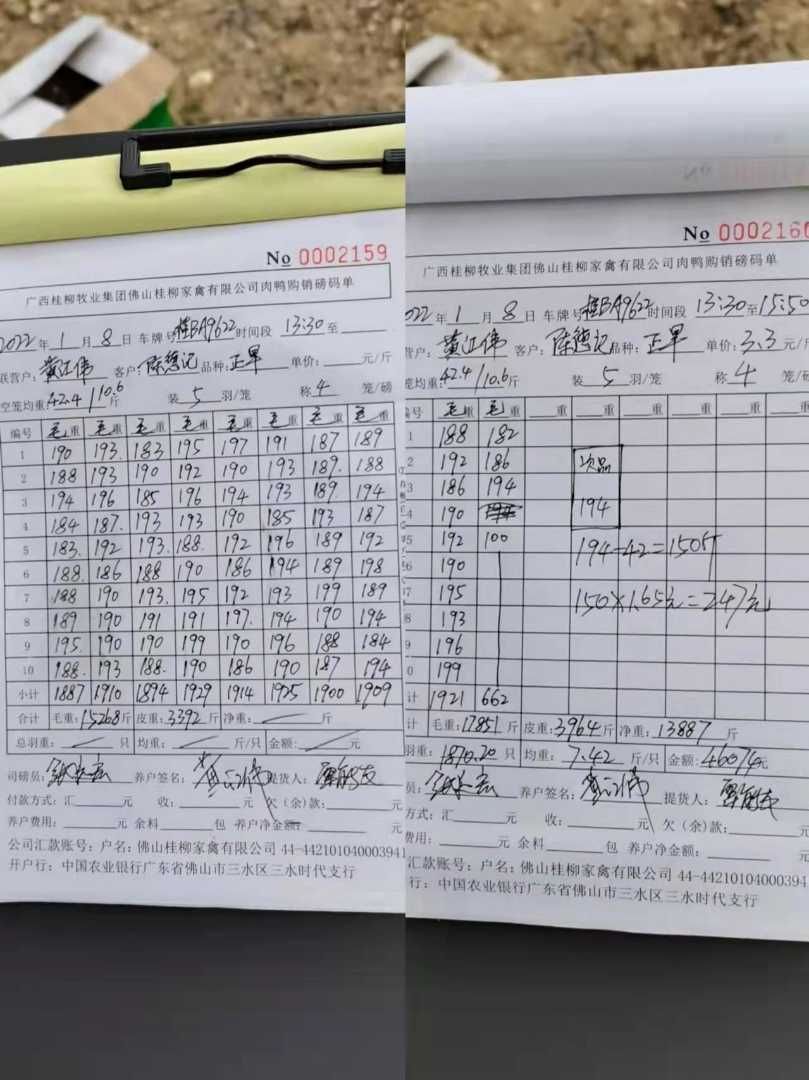 No 0002159
广西桂柳牧业集团佛山桂柳家禽有限公司肉鸭购销磅码单
2022年 1 月 8 日 车牌号桂BA9622时间段 13:30 至
联营户:黄江伟 客户:陈德记 品种:正旱 单价: 元/斤
空笼均重:42.4/10.6斤 装 5 羽/笼 称 4 笼/磅
编号 毛重 毛重 毛重 毛重 毛重 毛重 毛重 毛重
1 190 193 183 195 197 191 187 189
2 188 193 190 192 190 193 189 188
3 194 196 185 196 194 193 189 194
4 184 187 193 193 190 185 193 187
5 183 192 193 188 192 196 189 192
6 188 186 188 190 186 194 189 198
7 188 190 193 195 192 193 199 189
8 189 190 191 191 197 194 190 194
9 195 190 190 199 190 196 188 184
10 188 193 188 190 186 190 187 194
小计 1887 1910 1894 1929 1914 1925 1900 1909
合计 毛重:15268斤 皮重:3392斤 净重: 斤
总羽重: 只 均重: 斤/只 金额: 元
司磅员: 养户签名: 提货人:
付款方式:汇 元 收: 元 欠(余)款: 元
养户费用: 元 余料 包 养户净金额: 元
公司汇款账号:户名:佛山桂柳家禽有限公司 44-442101040003941
开户行:中国农业银行广东省佛山市三水区三水时代支行
No 000216
广西桂柳牧业集团佛山桂柳家禽有限公司肉鸭购销磅码单
022年 1 月 8 日 车牌号桂BA9622时间段 13:30至15:50
营户:黄江伟 客户:陈德记品种:正旱 单价:3.3元/斤
笼均重:42.4/10.6斤 装 5 羽/笼 称 4 笼/磅
编号 毛重 毛重 重 重 重 重 重
1 188 182
2 192 186 次品
3 186 194
4 190 194
5 192 100 194-42=150斤
6 190
7 195 150×1.65元=247元
8 193
9 196
0 199
计 1921 662
计 毛重:17851斤 皮重:3964斤 净重:13887 斤
羽重:1870.20 只 均重:7.42 斤/只 金额:46074元
员: 养户签名: 提货人:
方式:汇 元 收: 元 欠(余)款:
费用: 元 余料 包 养户净金额: 元
汇款账号:户名:佛山桂柳家禽有限公司 44-44210104000394
行:中国农业银行广东省佛山市三水区三水时代支行